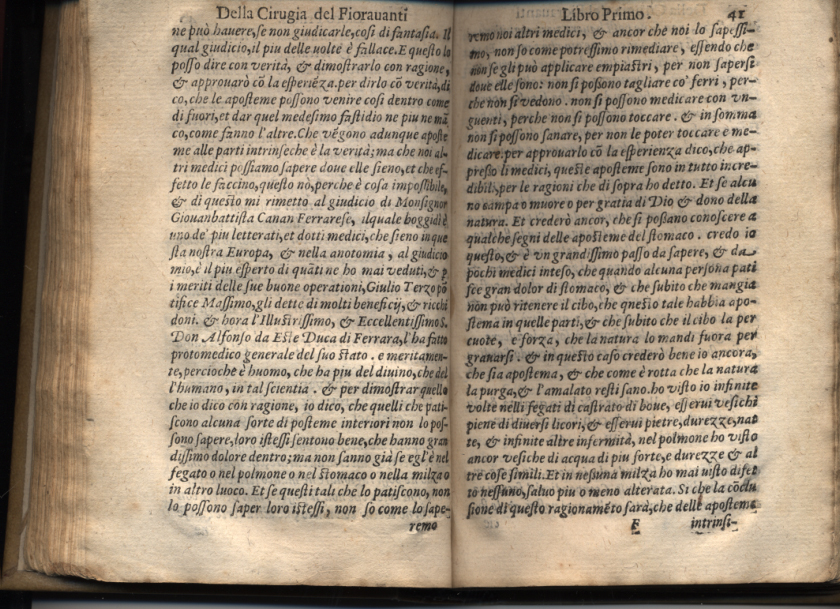 Della Cirugia del Fiorauanti
ne può hauere, se non giudicarle, cosi di fantasia. Il
qual giudicio, il piu delle uolte è fallace. E questo lo
posso dire con verità, & dimostrarlo con ragione,
& approuarò cō la esperiēza. per dirlo cō verità, di
co, che le aposteme possono venire cosi dentro come
di fuori, et dar quel medesimo fastidio ne piu ne mā
co, come fanno l'altre. Che vēgono adunque aposte
me alle parti intrinseche è la verità; ma che noi al-
tri medici possiamo sapere doue elle sieno, et che ef-
fetto le faccino, questo nò, perche è cosa impossibile,
& di questo mi rimetto al giudicio di Monsignor
Giouanbattista Canan Ferrarese, ilquale hoggidì è
uno de' piu letterati, et dotti medici, che sieno in que
sta nostra Europa, & nella anotomia, al giudicio
mio, è il piu esperto di quāti ne ho mai veduti, & p
i meriti delle sue buone operationi, Giulio Terzo pō
tifice Massimo, gli dette di molti beneficij, & ricchi
doni. & hora l'Illustrissimo, & Eccellentissimo S.
Don Alfonso da Este Duca di Ferrara, l'ha fatto
protomedico generale del suo stato. e meritamen-
te, percioche è huomo, che ha piu del diuino, che del
l'humano, in tal scientia. & per dimostrar quello
che io dico con ragione, io dico, che quelli che pati-
scono alcuna sorte di posteme interiori non lo pos-
sono sapere, loro istessi sentono bene, che hanno gran
dissimo dolore dentro; ma non sanno già se egl'è nel
fegato o nel polmone o nel stomaco o nella milza o
in altro luoco. Et se questi tali che lo patiscono, non
lo possono saper loro istessi, non so come lo sape-
remo
Libro Primo. 41
remo noi altri medici, & ancor che noi lo sapessi-
mo, non so come potressimo rimediare, essendo che
non se gli può applicare empiastri, per non sapersi
doue elle sono: non si possono tagliare co' ferri, per-
che non si vedono. non si possono medicare con vn-
guenti, perche non si possono toccare. & in somma
non si possono sanare, per non le poter toccare e me-
dicare. per approuarlo cō la esperienza dico, che ap-
presso li medici, queste aposteme sono in tutto incre-
dibili, per le ragioni che di sopra ho detto. Et se alcu
no campa o muore o per gratia di Dio & dono della
natura. Et crederò ancor, che si possano conoscere a
qualche segni delle aposteme del stomaco. credo io
questo, & è vn grandissimo passo da sapere, & da
pochi medici inteso, che quando alcuna persona pati
sce gran dolor di stomaco, & che subito che mangia
non può ritenere il cibo, che questo tale habbia apo-
stema in quelle parti, & che subito che il cibo la per
cuote, e forza, che la natura lo mandi fuora per
grauarsi. & in questo caso crederò bene io ancora,
che sia apostema, & che come è rotta che la natura
la purga, & l'amalato resti sano. ho visto io infinite
volte nelli fegati di castrato di boue, esserui vesichi
piene di diuersi licori, & esserui pietre, durezze, nat
te, & infinite altre infermità, nel polmone ho visto
ancor vesiche di acqua di piu sorte, e durezze & al
tre cose simili. Et in nessuna milza ho mai uisto difet
to nessuno, saluo piu o meno alterata. Si che la cōclu
sione di questo ragionamēto sarà, che delle aposteme
F intrinsi-